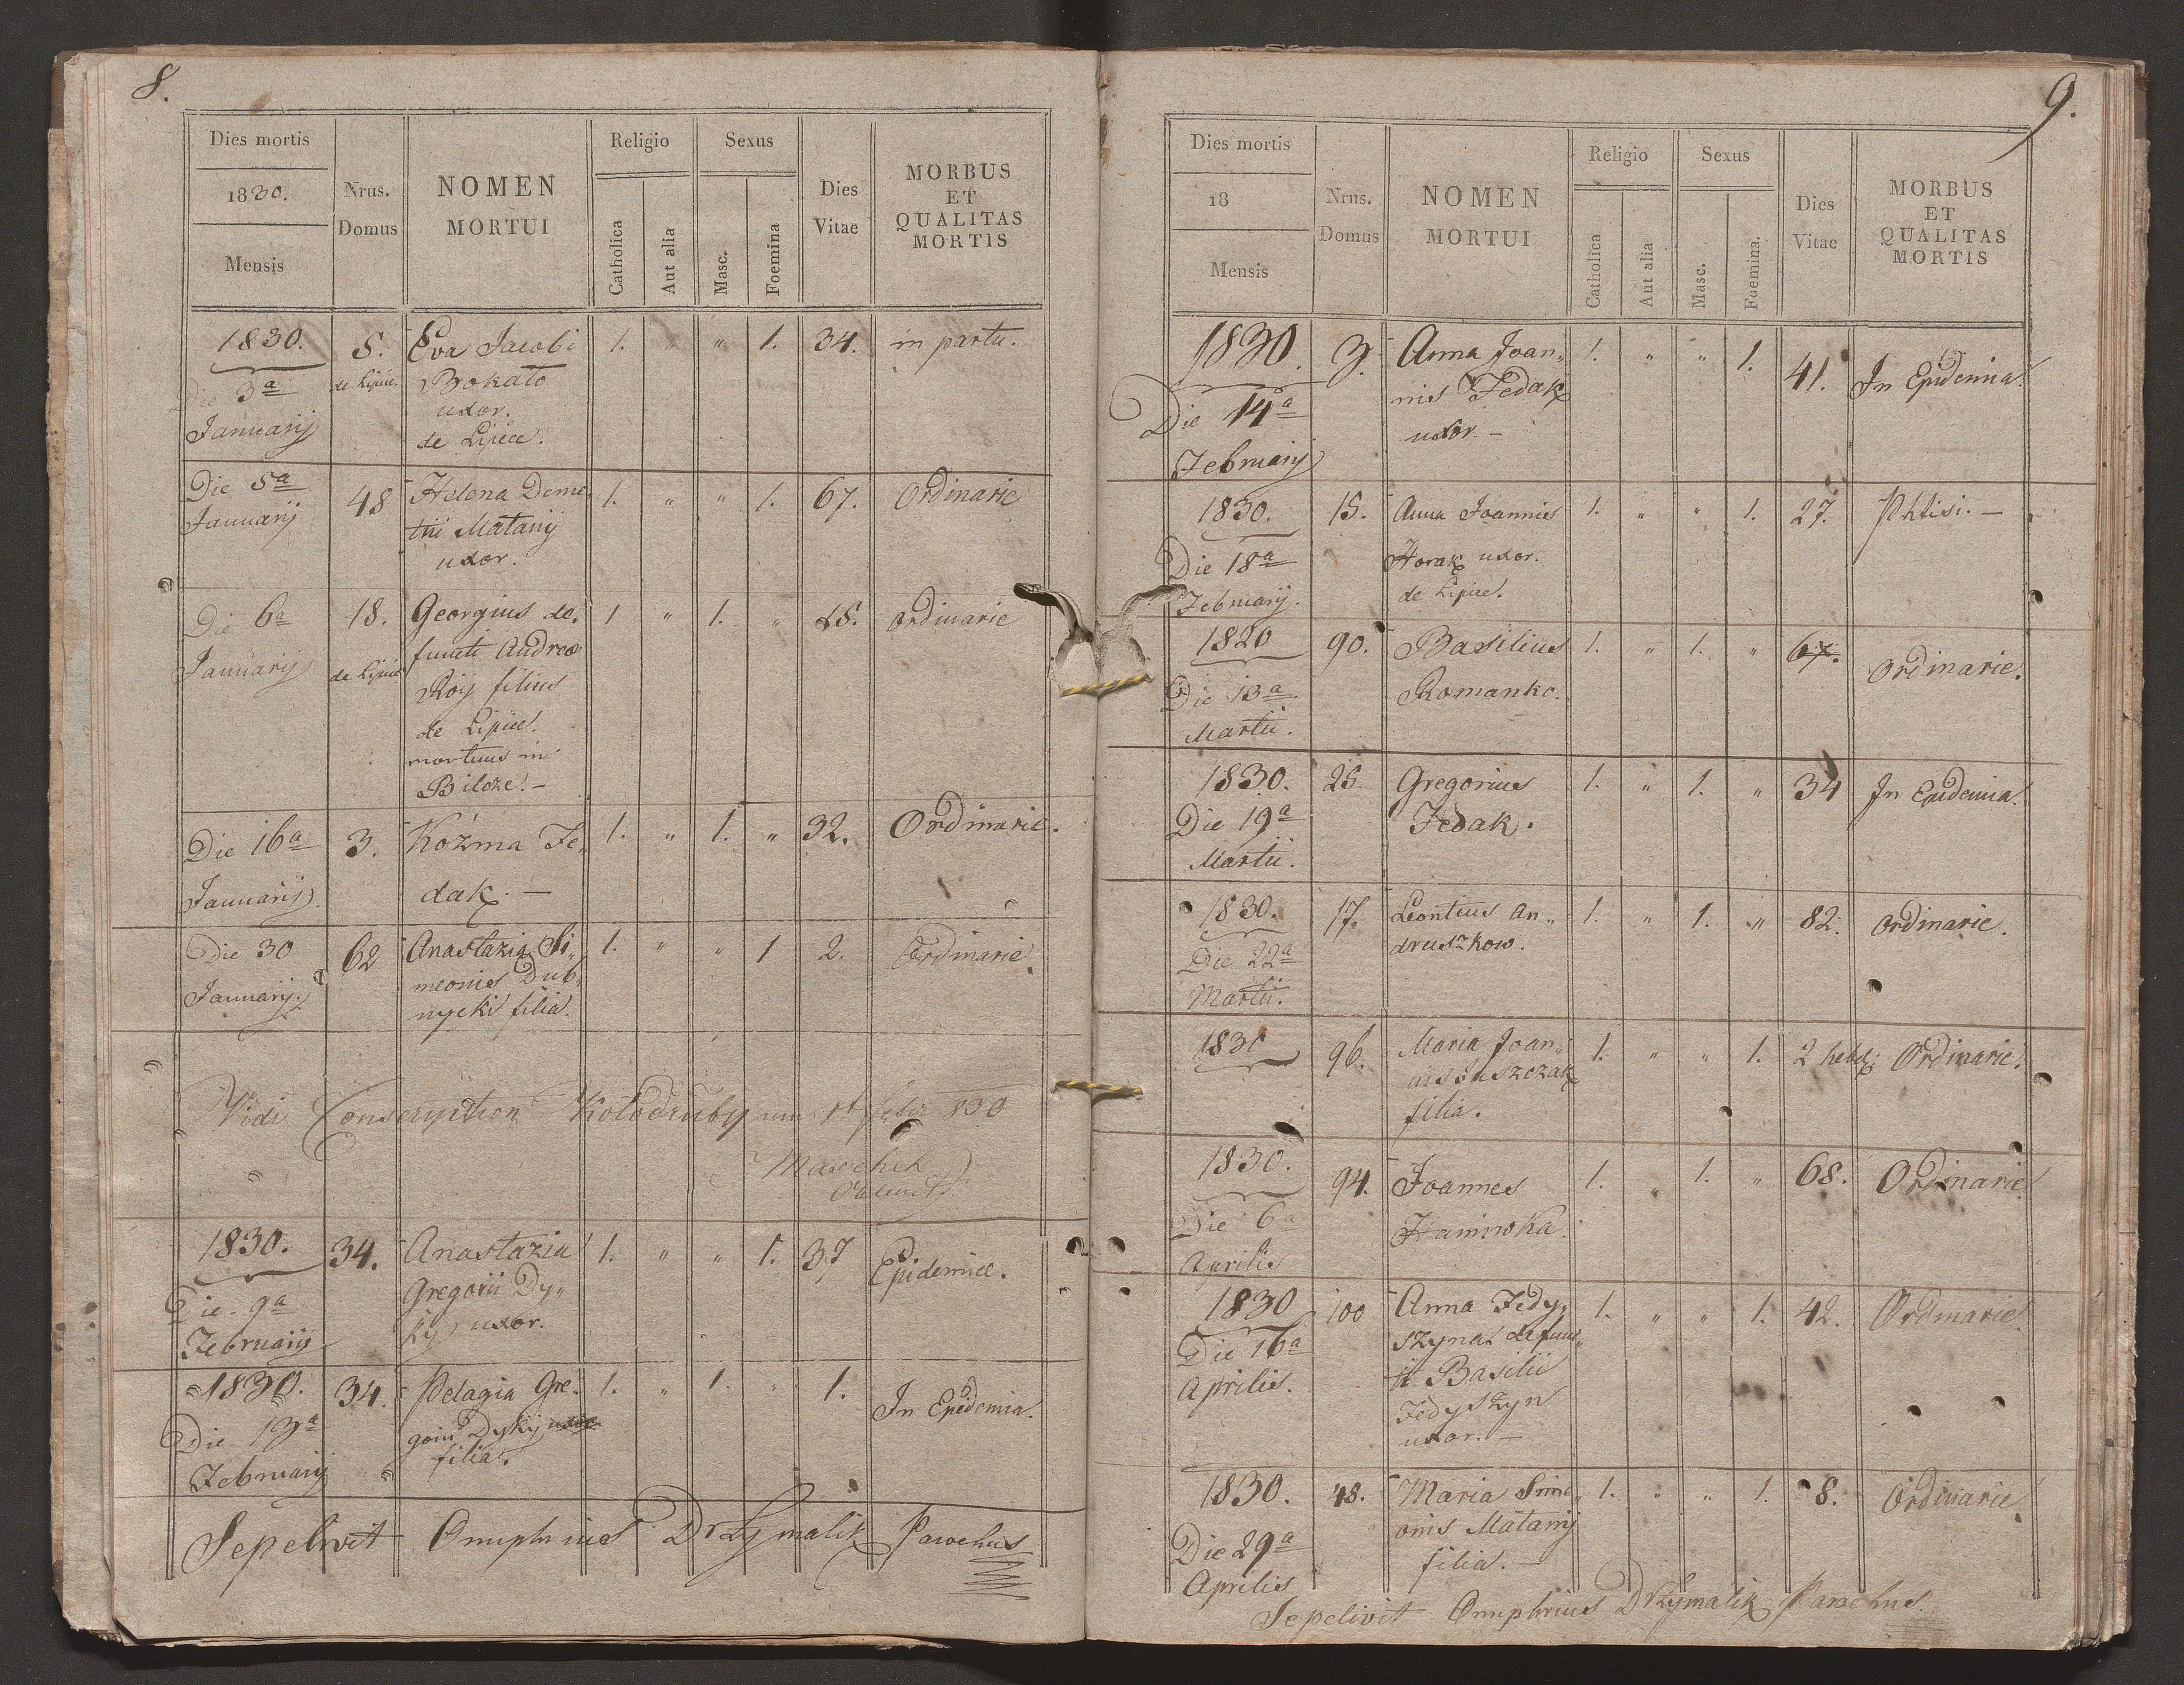 8.
Dies mortis
1830.
Mensis
Nrus.
Domus
NOMEN
MORTUI
Religio
Catholica
Aut alia
Sexus
Masc.
Foemina
Dies
Vitae
MORBUS
ET
QUALITAS
MORTIS
1830. 5. Eva Jacobi 1. " " 1. 34. in partu.
Die 3a de Lipice Bokało
uxor.
Januarij de Lipice.
Die 5a 48 Helena Deme 1. " " 1. 67. Ordinarie
Januarij trii Matanij
uxor.
Die 6a 18. Georgius de, 1 " 1. " 25. ordinarie
functi Andreæ
Januarij de Lipice Roij filius
de Lipice.
mortuus in
Bilcze. –
Die 16a 3. Koźma Fe„ 1. " 1. " 32. Ordinarie.
Januarij. dak. —
Die 30 62 Anastazia Si„ 1. " " 1 2. Ordinarie
Januarij. meonis Dub„
nycki filia.
Vidi Conscription Kołodruby am 1t febr 830
Maschek
1830. 34. Anastazia 1. " " 1. 37 Epidemice.
Die 9a Gregorii Dy„
Februarij kij uxor.
1830. 34. Pelagia Gre, 1. " 1. " 1. In Epidemia.
Die 13a gorii Dykij uxor
Februarij filia.
Sepelivit Onuphrius Drzymalik Parochus
9.
Dies mortis
18
Mensis
Nrus.
Domus
NOMEN
MORTUI
Religio
Catholica
Aut alia
Sexus
Masc.
Foemina.
Dies
Vitae
MORBUS
ET
QUALITAS
MORTIS
1830. 3. Anna Joan„ 1. " " 1. 41. In Epidemia.
Die 14a nis Fedak
Februarij uxor. –
1830. 15. Anna Joannis 1. " " 1. 27. Phtisi. —
Die 18a Horak uxor.
Februarij. de Lipice.
1820 90. Basilius 1. " 1. " 67. Ordinarie.
Die 13a Romanko.
Martii.
1830. 25. Gregorius 1. " 1. " 34 In Epidemia.
Die 19a Fedak.
Martii.
1830. 17. Leontius An„ 1. " 1. " 82. Ordinarie.
Die 22a druszkow.
Martii.
1830 96. Maria Joan„ 1. " " 1. 2 hebd. Ordinarie.
nis Suszczak
filia.
1830. 94. Joannes 1. " 1. " 68. Ordinarie.
Die 6a Haniwka.
Aprilis
1830 100 Anna Fedy„ 1. " " 1. 42. Ordinarie.
Die 16a szyna defunc„
Aprilis. ti Basilii
Fedyszyn
uxor. —
1830. 48. Maria Sime„ 1. " " 1. 8. Ordinarie.
Die 29a onis Matanij
Aprilis filia. —
Sepelivit Onuphrius Drzymalik Parochus.